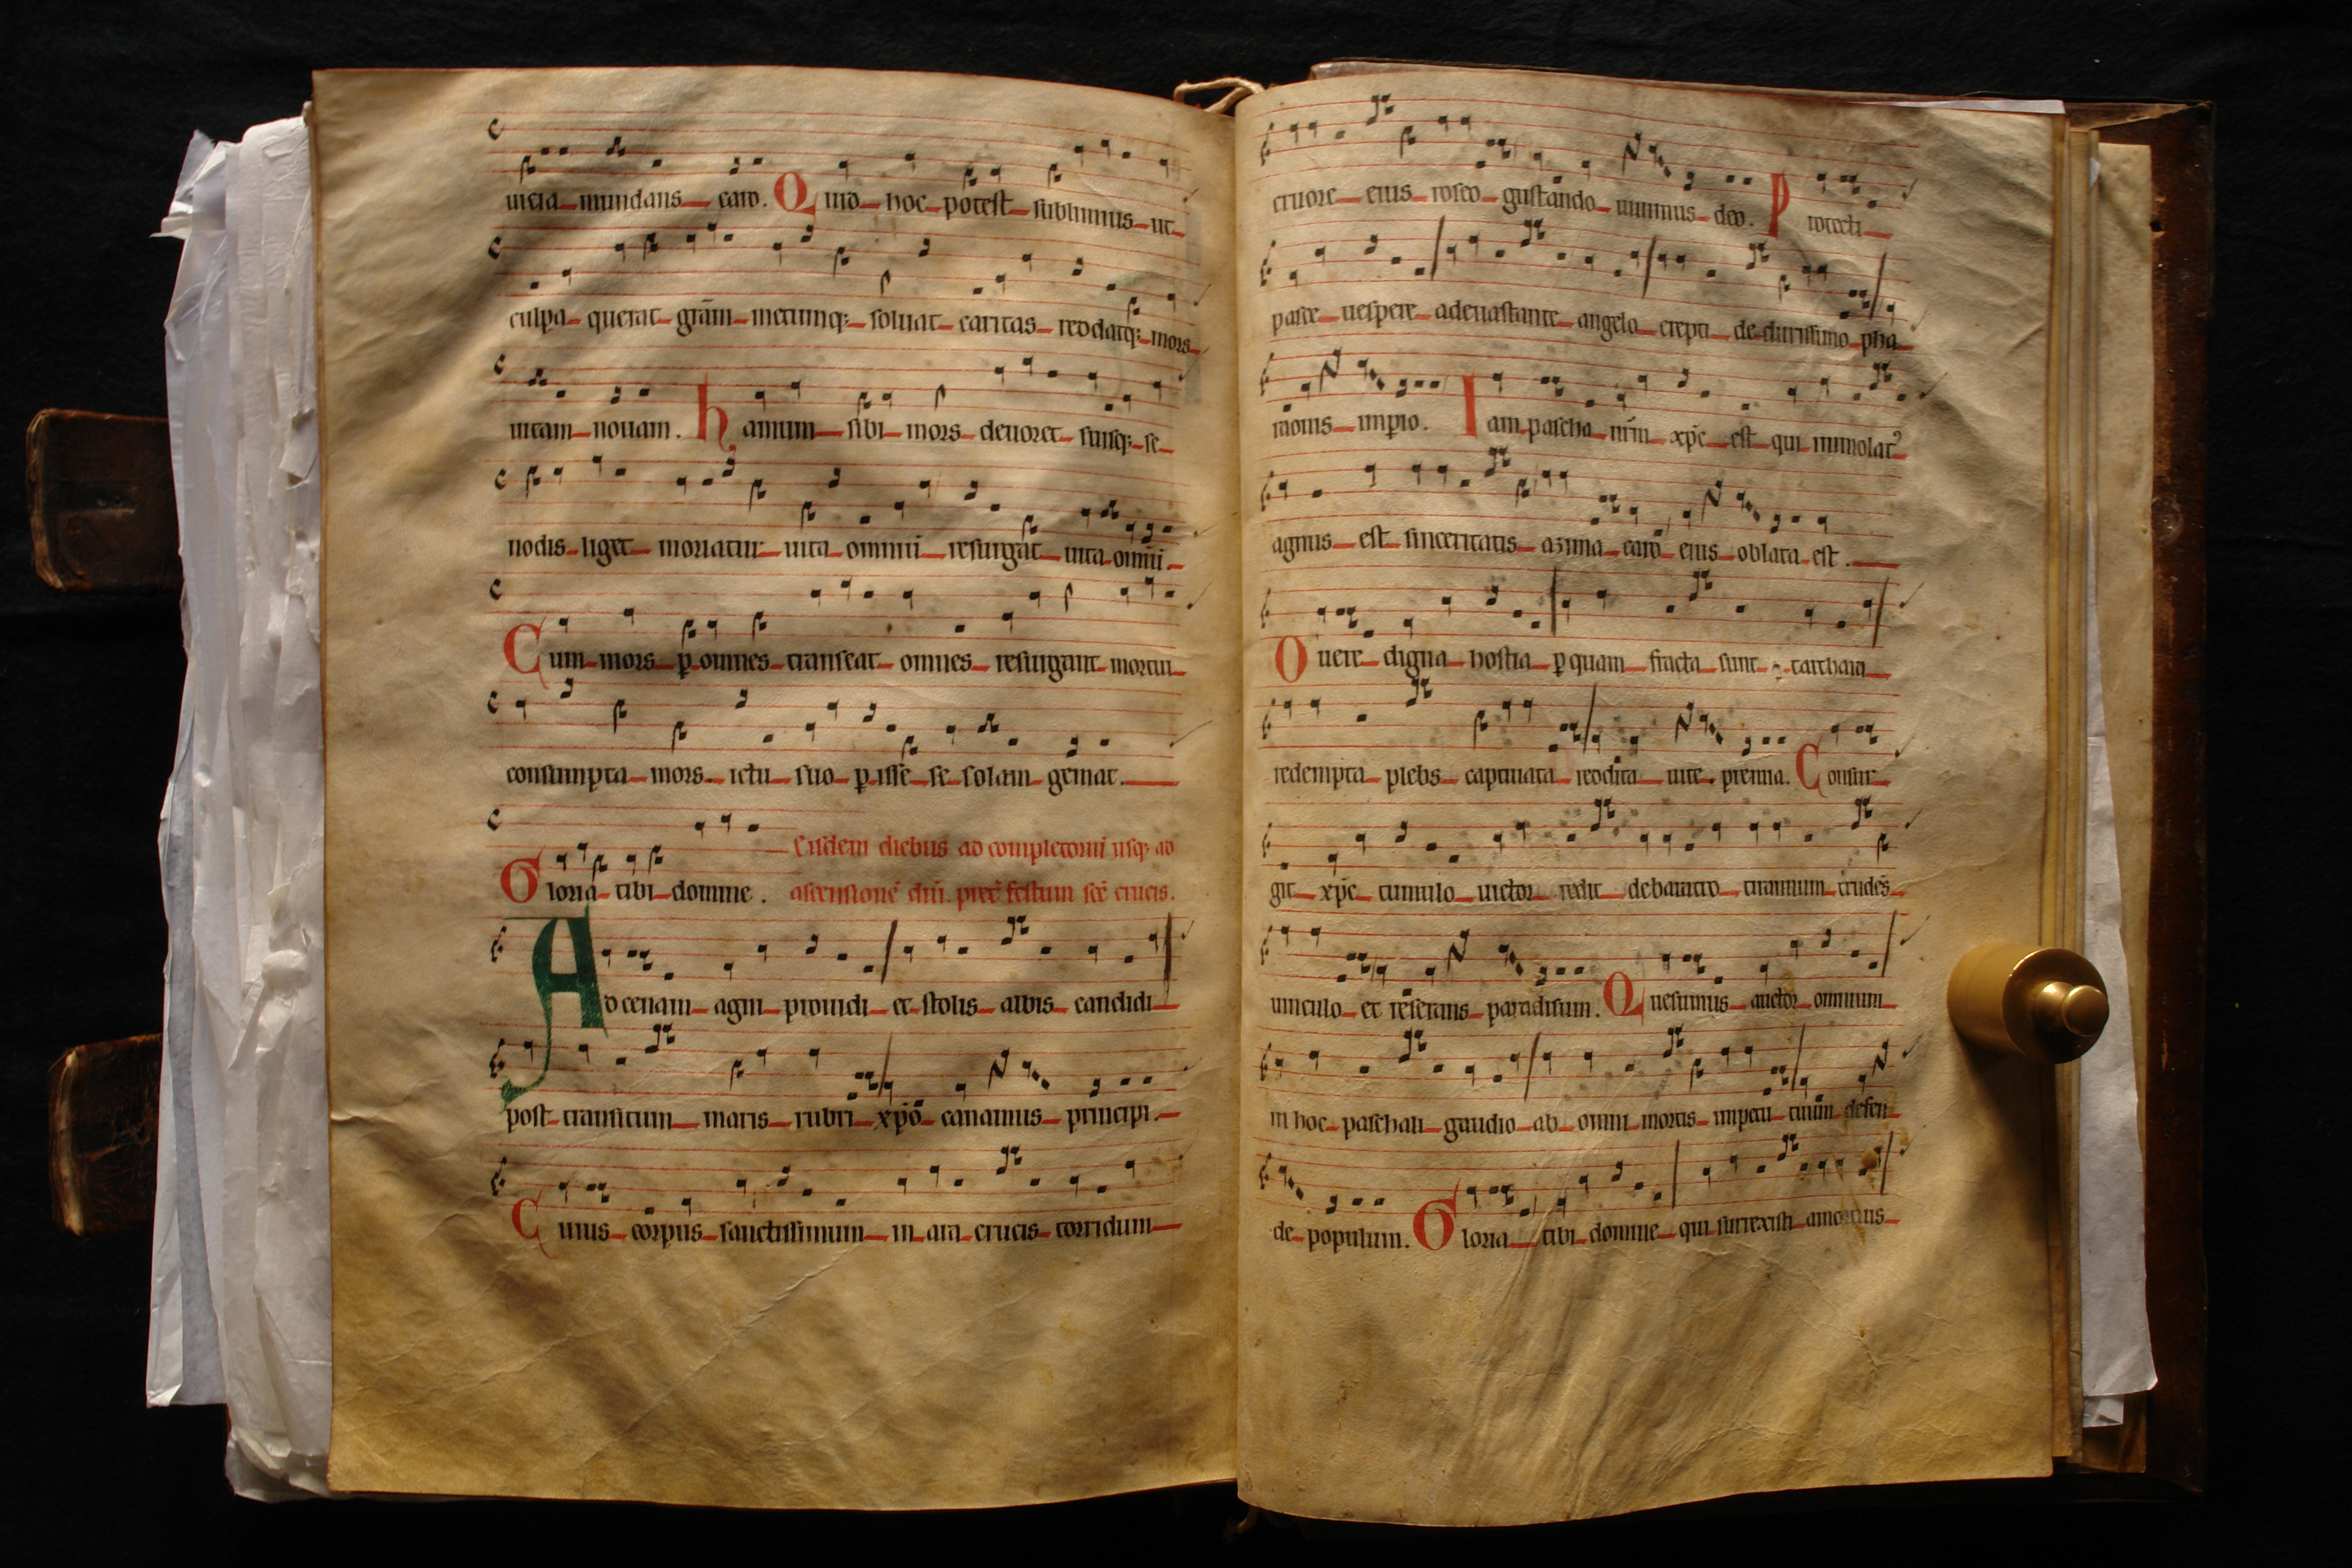 uicia mundans caro. Quid hoc potest sublimius ut
culpa querat grām metumq; soluat caritas reddatq; mors
uitam nouam. hamum sibi mors deuoret suisq; se
nodis liget moriatur uita omniū resurgat uita omniū.
Cum mors ꝑ omnes transeat omnes resurgant mortui
consumpta mors ictu suo ꝑisse se solam gemat.
Eisdem diebus ad completoriū usq; ad
Gloria tibi domine. ascensionē dn̄i. p̄t̄ festum sc̄e crucis.
Ad cenam agni prouidi et stolis albis candidi
post transitum maris rubri xp̄o canamus principi.
Cuius corpus sanctissimum in ara crucis torridum
cruore eius roseo gustando uiuimus deo. Protecti
pasce uespere adeuastante angelo erepti de durissimo pha
raonis imperio. Iam pascha nr̄m xp̄c est qui immolatꝰ
agnus est sinceritatis azima caro eius oblata est.
O uere digna hostia ꝑ quam fracta sunt tarthara
redempta plebs captiuata reddita uite premia. Consur
git xp̄c tumulo uictor redit debaratro tirannum trudēs
uinculo et reserans paradisum. Quesumus auctor omnium
in hoc paschali gaudio ab omni mortis impetu tuūm defen
de populum. Gloria tibi domine qui surrexisti amortuis